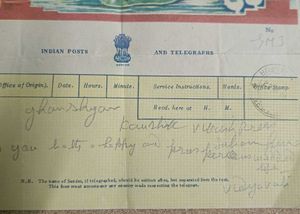 No
INDIAN POSTS AND TELEGRAPHS
Office of Origin). Date. Hours. Minute. Service Instructions. Words. Office Stamp
Recd. here at H. M.
ghanshyam
Kaushik
you both a happy and prosperous
life
N.B. The name of Sender, if telegraphed, should be written after, but separated from the text.
This form must accompany any enquiry made respecting the telegram.
Vidyavati